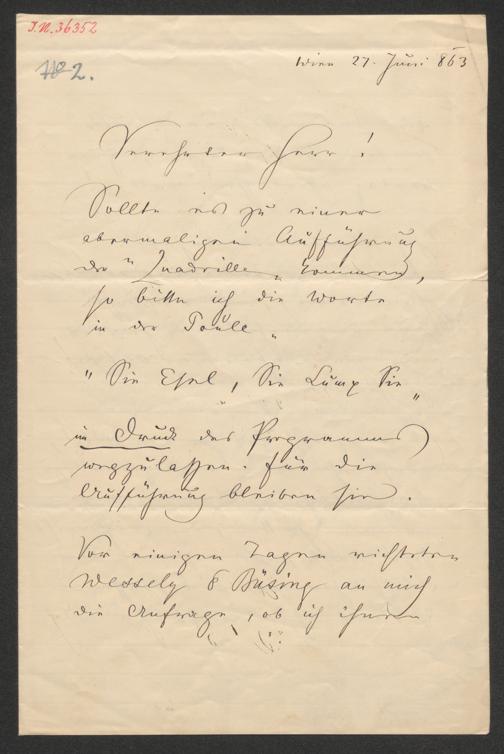 I.N. 36352
No 2.
Wien 27. Juni 863
Verehrter Herr!
Sollte es zu einer
abermaligen Aufführung
der „Quadrille“ kommen,
so bitte ich die Worte
in der Poule „
„ Sie Esel, Sie Lump Sie “
im Druck des Programms
wegzulassen. Für die
Aufführung bleiben sie.
Vor einigen Tagen richteten
Wessely & Büsing an mich
die Anfrage, ob ich ihnen